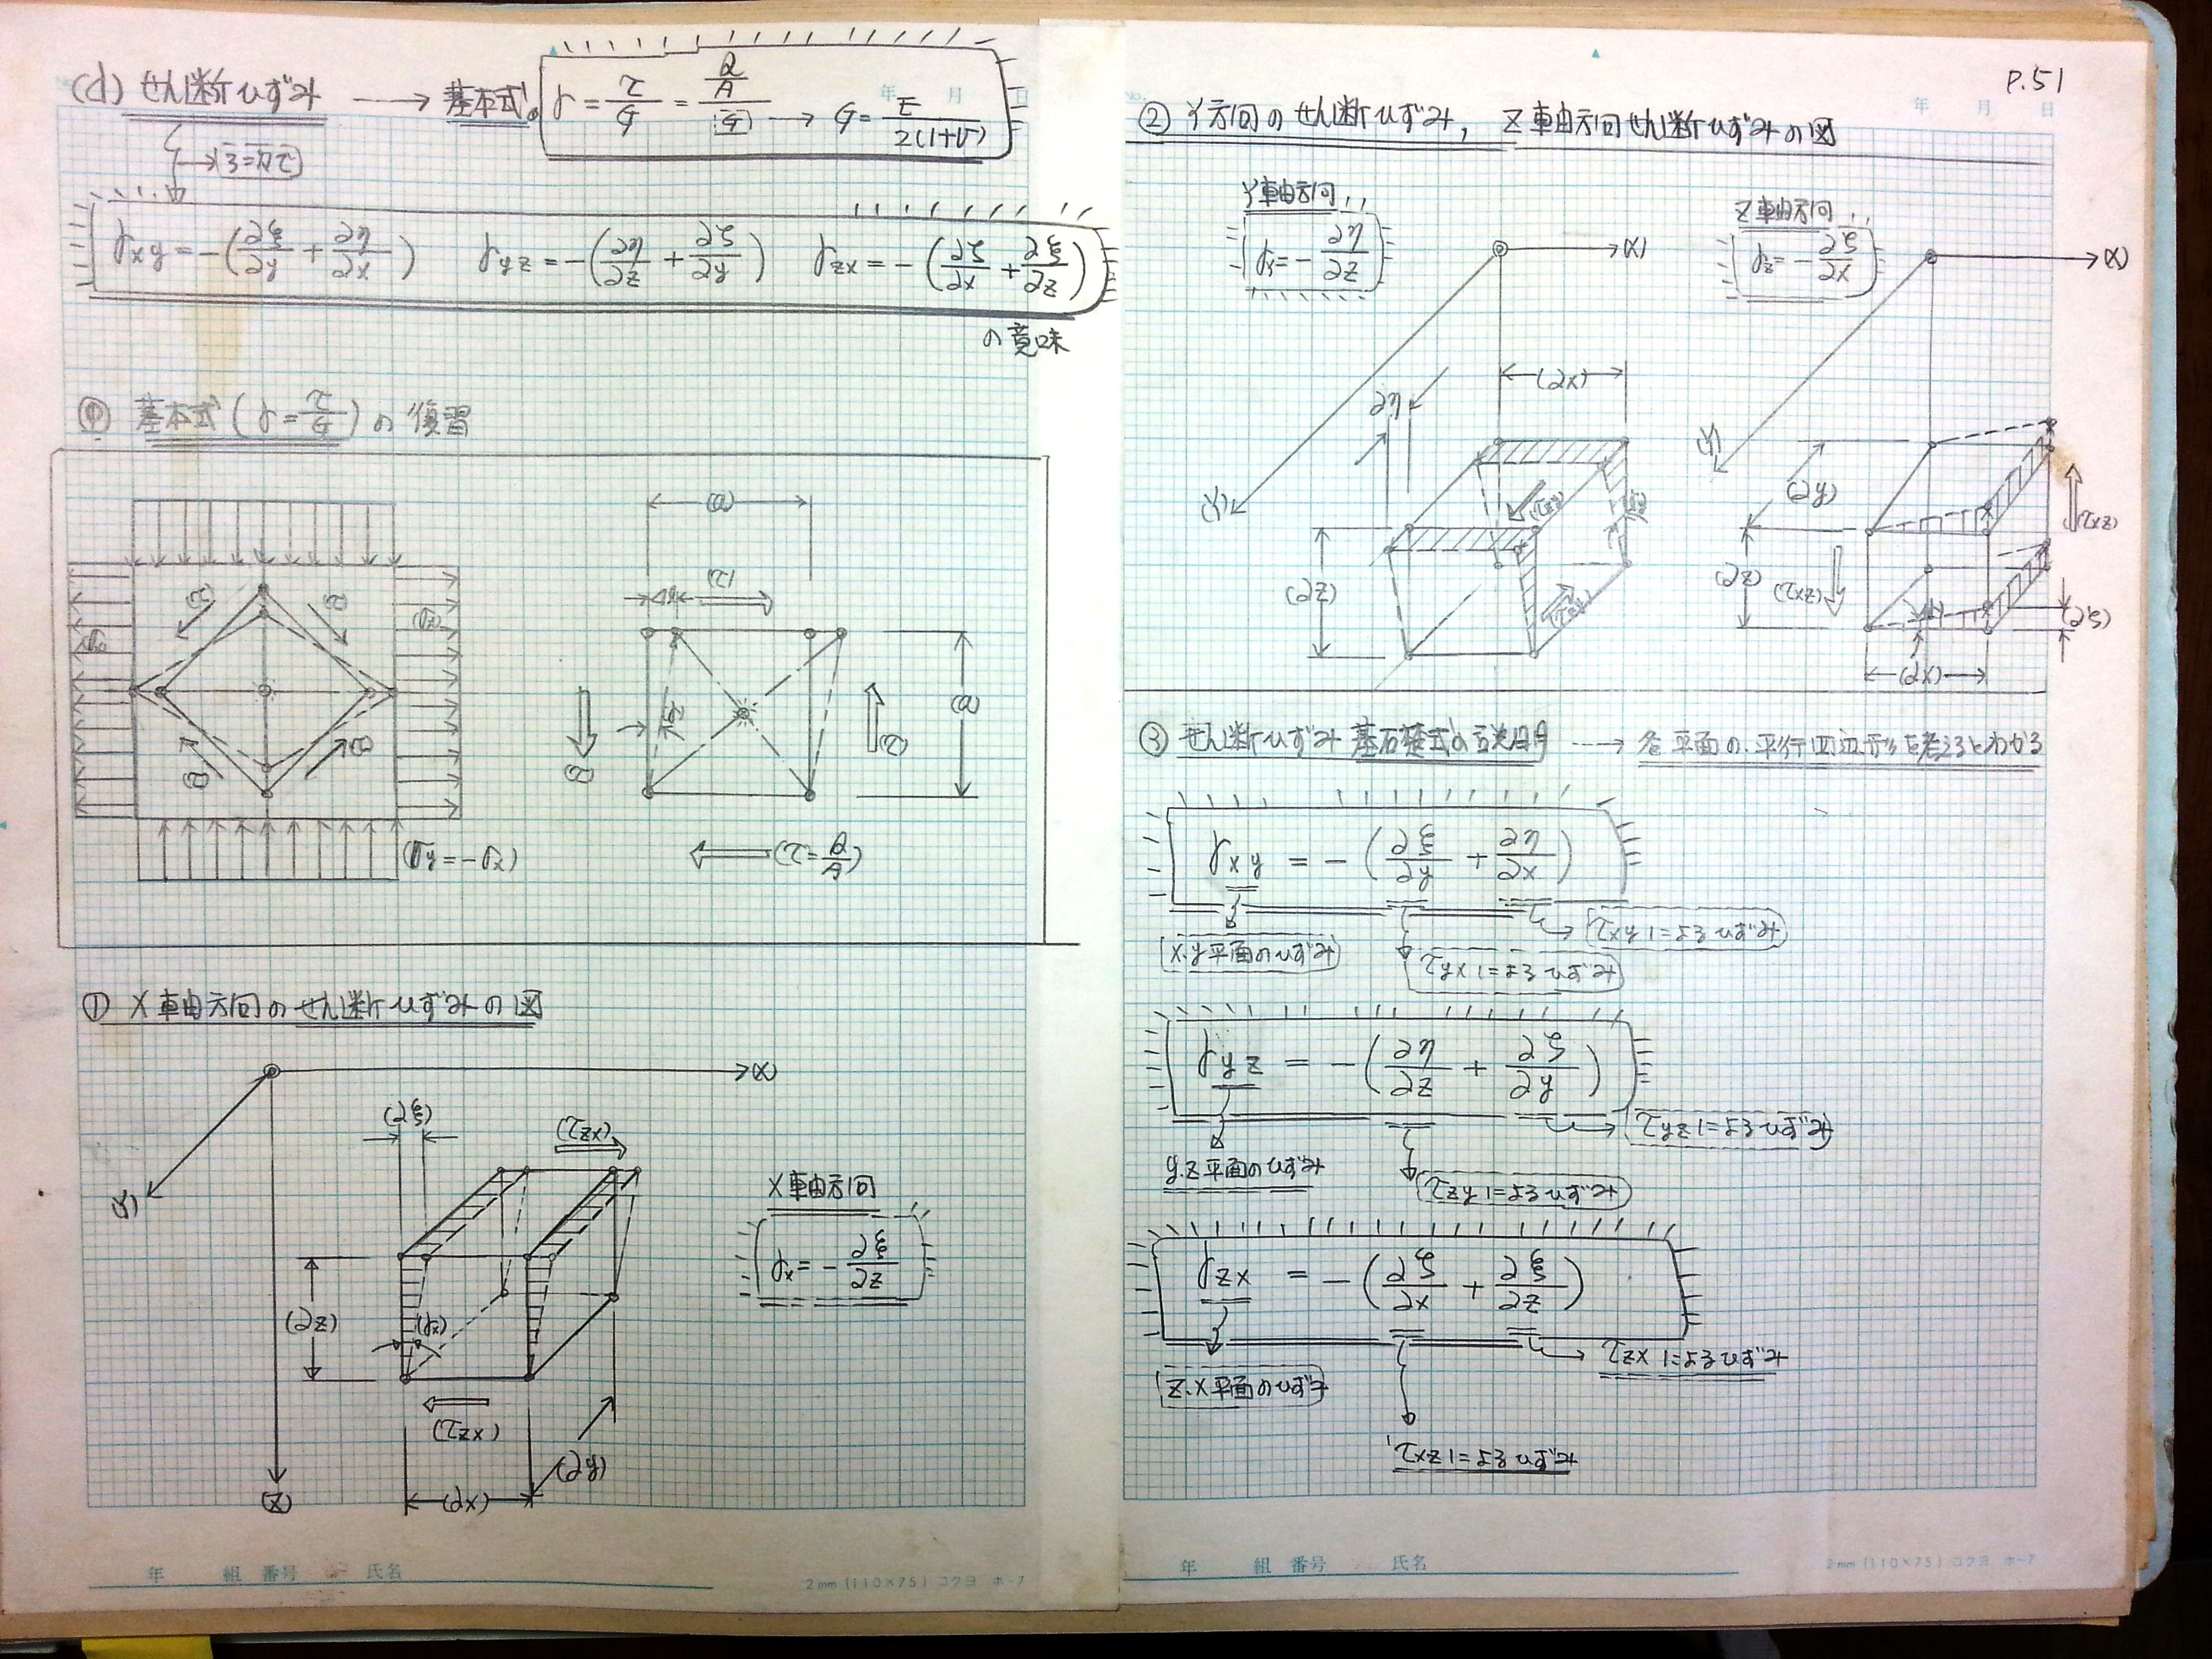 (d) せん断ひずみ → 基本式。 γ = τ/G = (Q/A)/G → G = E/2(1+ν)
γxy = -(∂ξ/∂y + ∂η/∂x) γyz = -(∂η/∂z + ∂ζ/∂y) γzx = -(∂ζ/∂x + ∂ξ/∂z)
の意味
基本式 (γ = τ/G) の復習
(a)
(τ)
(a)
(τ)
(σy = -σx)
(τ = Q/A)
① X軸方向のせん断ひずみの図
(X)
(Y)
(Z)
(∂ξ)
(τzx)
(∂z)
(γx)
(τzx)
(∂x)
(∂y)
X軸方向
γx = -∂ξ/∂z
年 組 番号 氏名
2mm (110×75) コクヨ ホ-7
P.51
年 月 日
② Y方向のせん断ひずみ, Z軸方向せん断ひずみの図
Y軸方向
γy = -∂η/∂z
(X)
(Y)
(∂x)
∂η
(∂z)
Z軸方向
γz = -∂ζ/∂x
(X)
(Y)
(∂y)
(τxz)
(∂z)
(τxz)
(∂ζ)
(∂x)
③ せん断ひずみ基礎式の説明 → 各平面の平行四辺形を考えるとわかる
γxy = -(∂ξ/∂y + ∂η/∂x)
τxyによるひずみ
x.y平面のひずみ
τyxによるひずみ
γyz = -(∂η/∂z + ∂ζ/∂y)
τyzによるひずみ
y.z平面のひずみ
τzyによるひずみ
γzx = -(∂ζ/∂x + ∂ξ/∂z)
τzxによるひずみ
z.x平面のひずみ
τxzによるひずみ
年 組 番号 氏名
2mm (110×75) コクヨ ホ-7